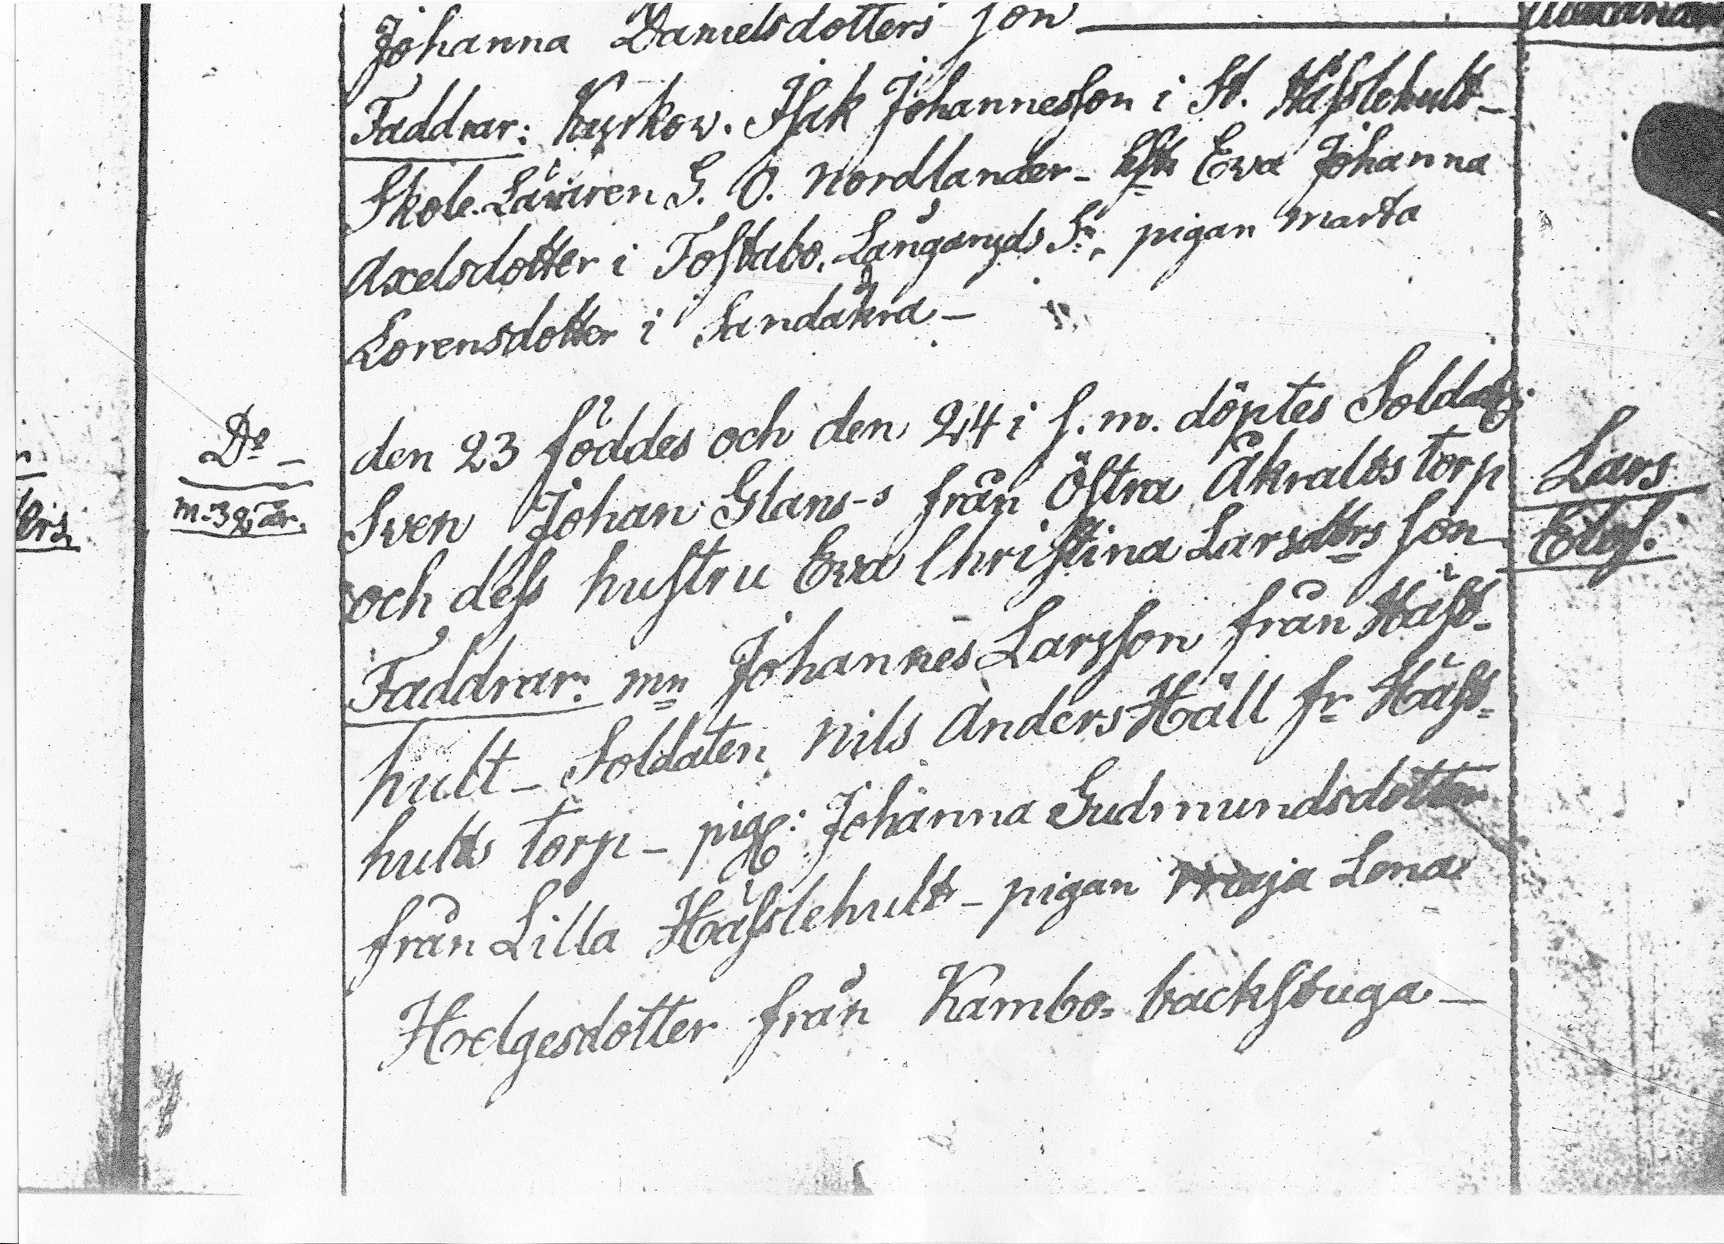 Johanna Danielsdotters son
Faddrar: Kyrkov. Isak Johannesson i St. Hässlehult
Skole-Läraren G. O. Nordlander - Ewa Johanna
Axelsdotter i Tostabo, Långaryds Sn, pigan Marta
Lorensdotter i Sandåkra -
Do - den 23 föddes och den 24 i s. m. döptes Soldat: Lars
m. 39 år. Sven Johan Glans-s från Östra Åkralts torp Elof.
och dess hustru Ewa Christina Larsdtrs son
Faddrar: mn Johannes Larsson från Häst-
hult - Soldaten Nils Anders Häll fr Häst=
hults torp - pig: Johanna Gudmundsdotter
från Lilla Hässlehult - pigan Maja Lena
Helgesdotter från Kambo= backstuga -